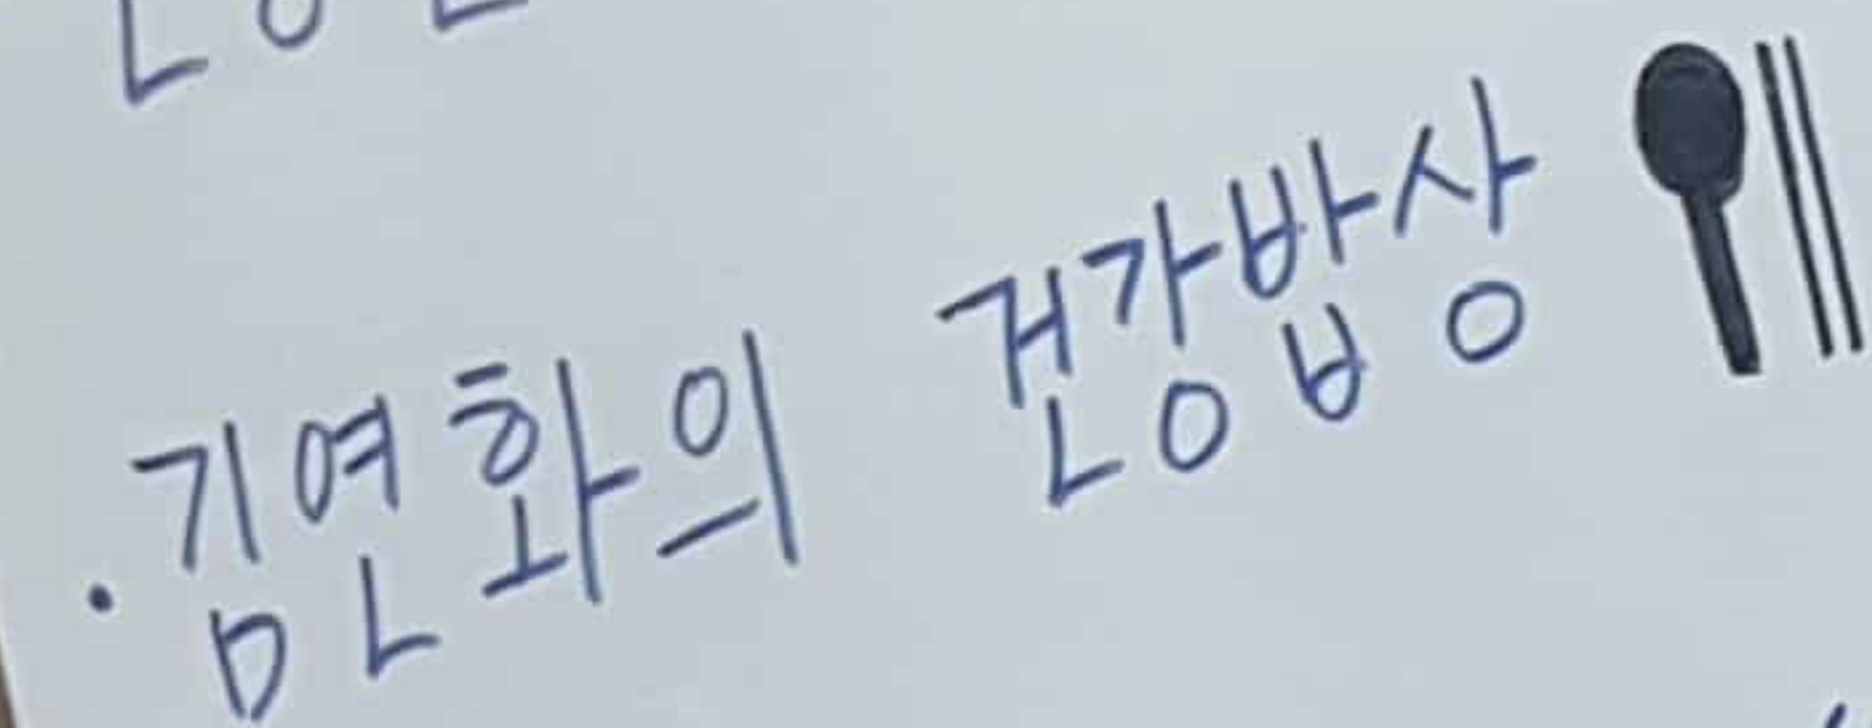 · 김연화의 건강밥상